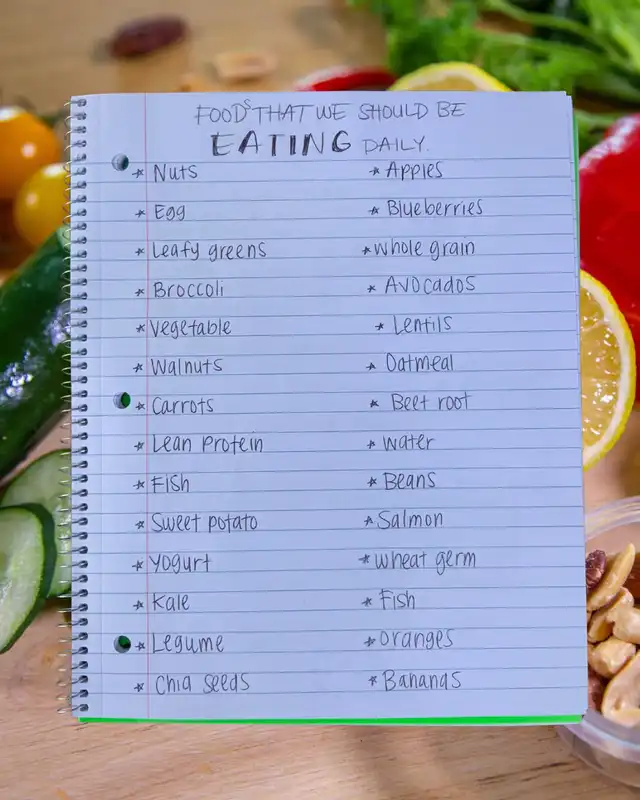 FOODS THAT WE SHOULD BE
EATING DAILY.
* Nuts
* Egg
* Leafy greens
* Broccoli
* Vegetable
* Walnuts
* Carrots
* Lean protein
* Fish
* Sweet potato
* Yogurt
* Kale
* Legume
* Chia seeds
* Apples
* Blueberries
* Whole grain
* Avocados
* Lentils
* Oatmeal
* Beet root
* Water
* Beans
* Salmon
* Wheat germ
* Fish
* Oranges
* Bananas